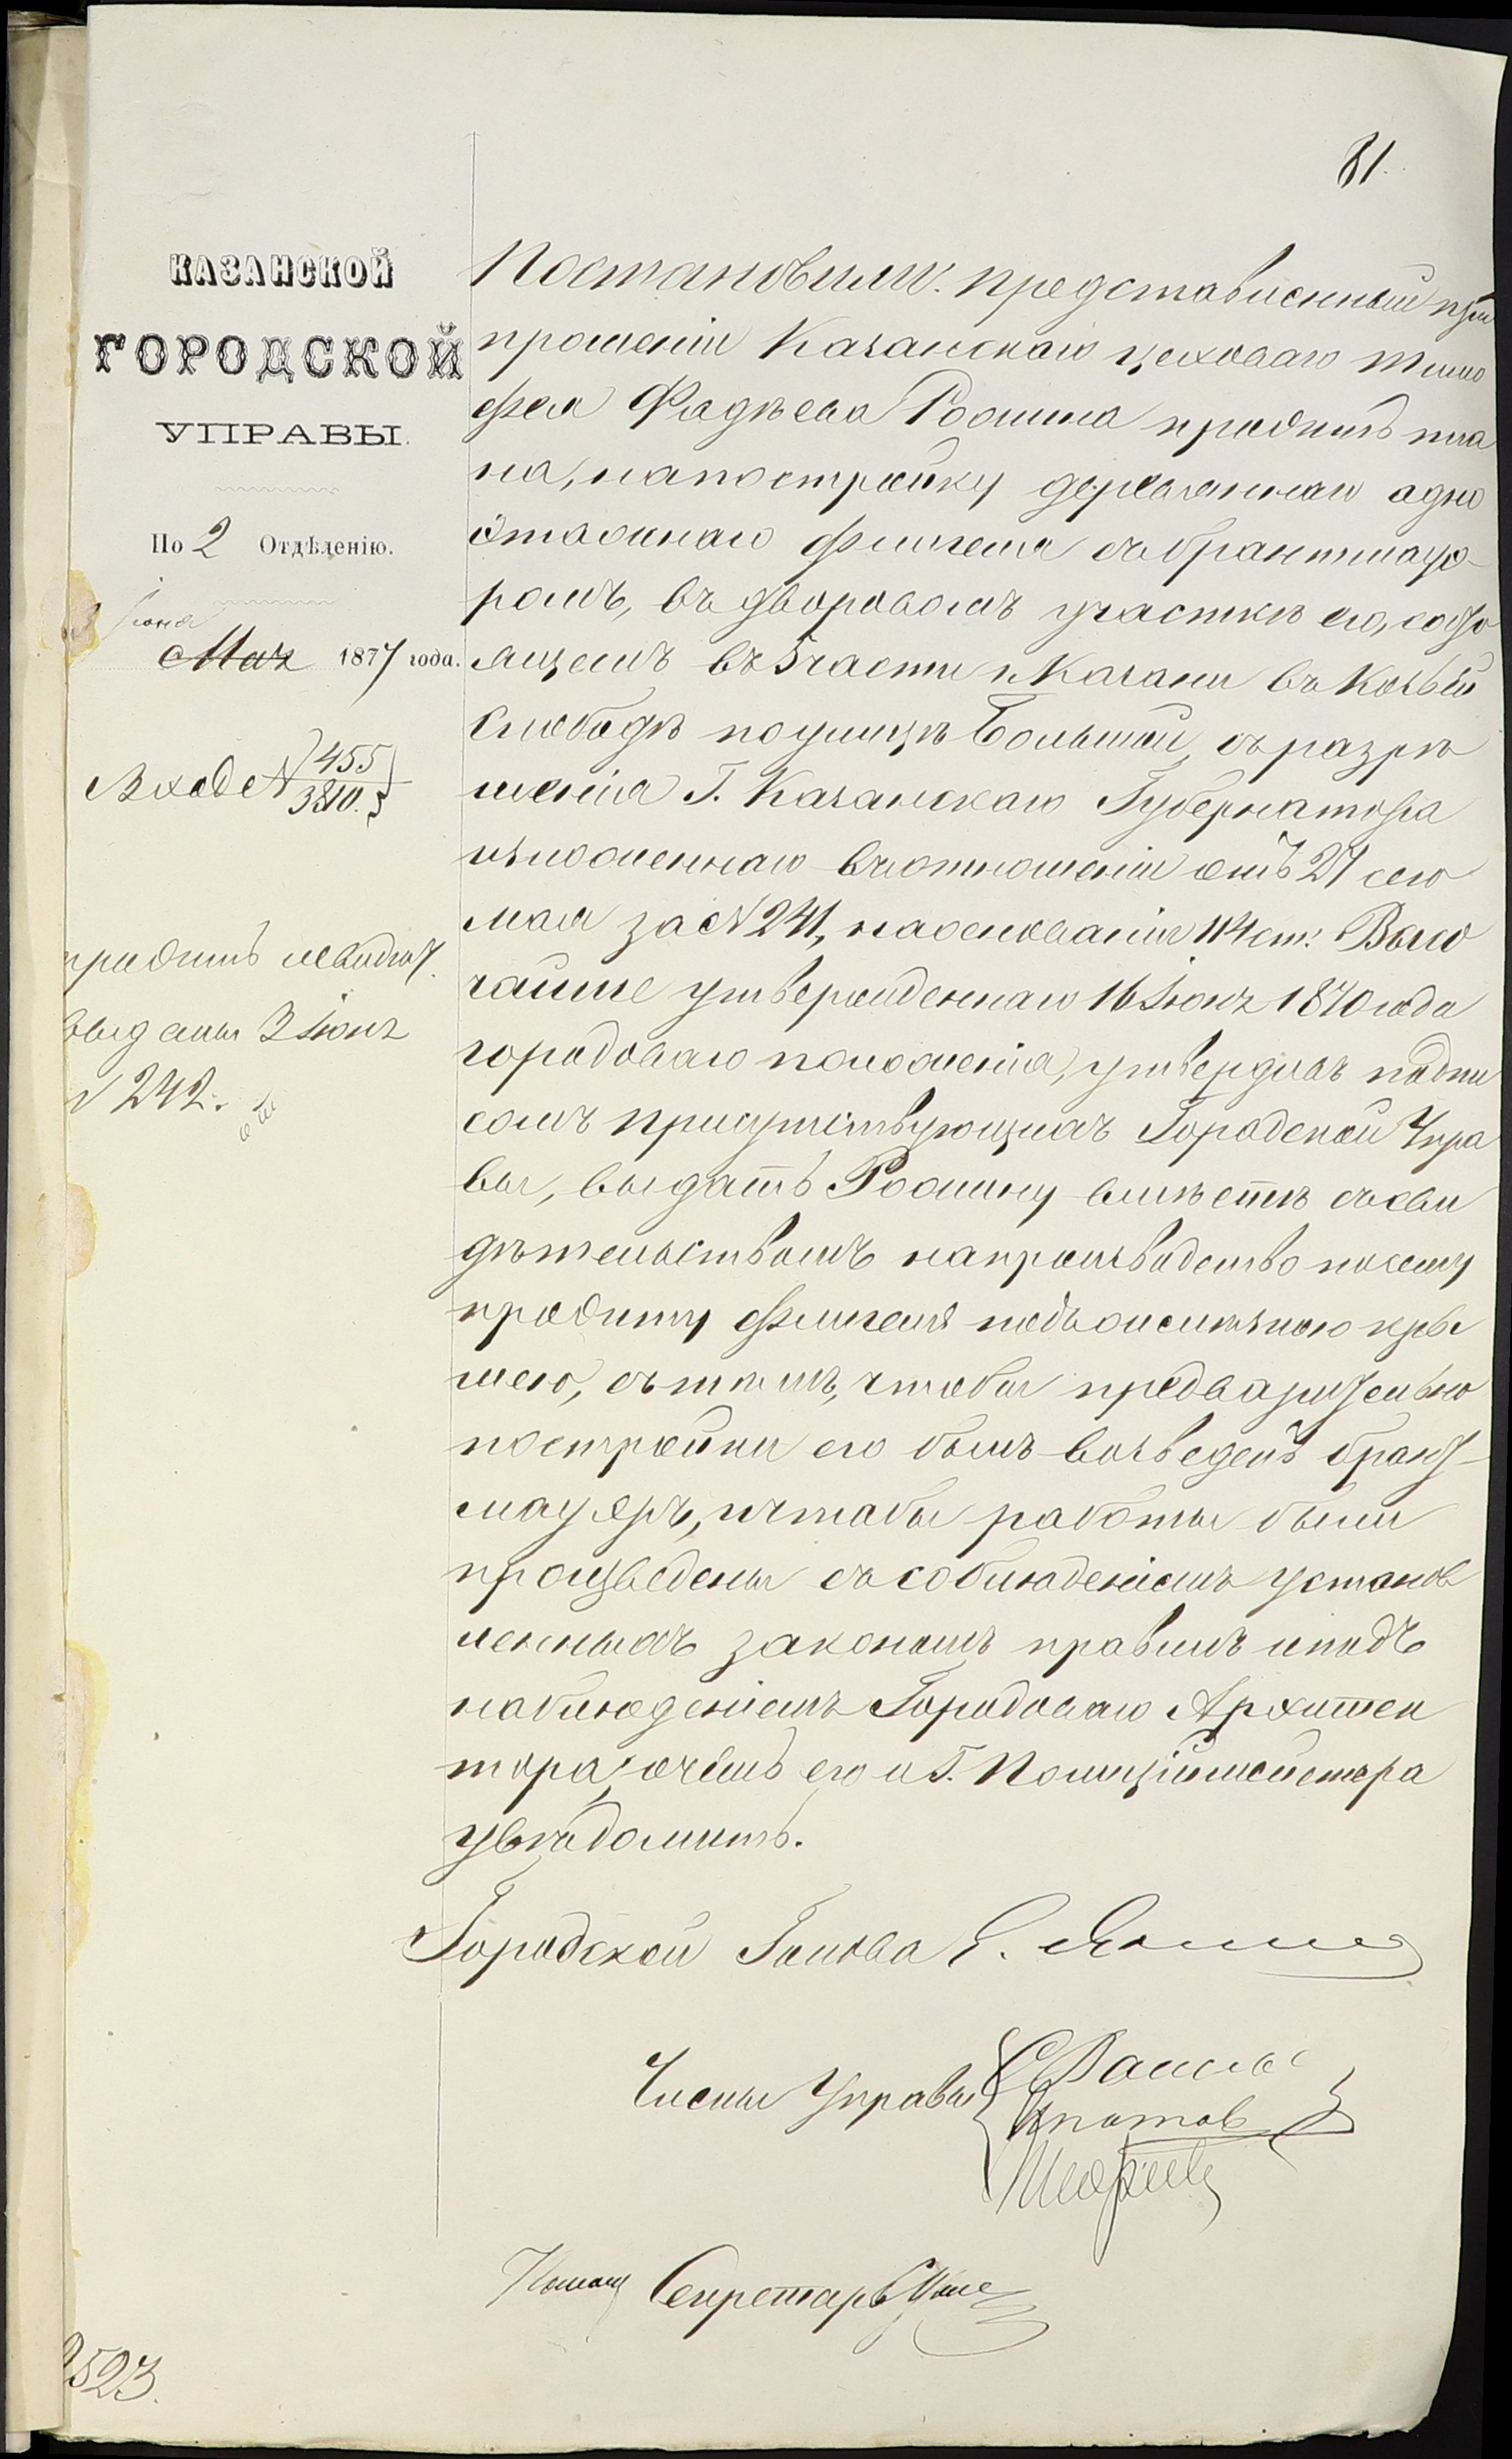 81.
КАЗАНСКОЙ
ГОРОДСКОЙ
УПРАВЫ.
По 2 Отдѣленію.
3 Іюня
Мая 1877 года.
Вход № 455
3810.
проэктъ и свидѣт.
выданы 3 Іюня
№ 242.
Постановили: представленный при
прошеніи Казанскаго цеховаго Тимо
фея Фадѣева Рощина проэктъ пла
на, на постройку деревяннаго одно
этажнаго флигеля съ брантмауэ-
ромъ, въ дворовомъ участкѣ его, состо
ящемъ въ 5 части г. Казани въ Козьей
слободѣ по улицѣ Большой, съ разрѣ
шенія Г. Казанскаго Губернатора
изложеннаго въ отношеніи отъ 27 сего
мая за № 241, на основаніи 114 ст: Высо
чайше утвержденнаго 16 Іюня 1870 года
городоваго положенія, утвердивъ подпи
сомъ присутствующихъ Городской Упра
вы, выдать Рощину вмѣстѣ съ сви
дѣтельствомъ на производство по сему
проэкту флигеля подъ желѣзною кры
шею, съ тѣмъ, чтобы предварительно
постройки его былъ возведенъ брант-
мауэръ, и чтобы работы были
произведены съ соблюденіемъ установ
ленныхъ закономъ правилъ и подъ
наблюденіемъ Городоваго Архитек
тора, о чемъ его и Г. Полиціймейстера
увѣдомить.
Городской Голова Е.
Члены Управы
Ипатов
Секретарь
2523.